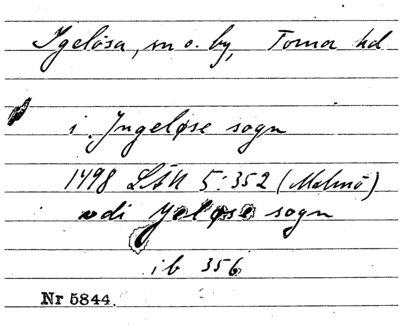 Igelösa, sn o. by, Torna hd
i Jngeløse sogn
1498 LÅU 5:352 (Malmö)
di Jgeløse sogn
ib 356
Nr 5844.